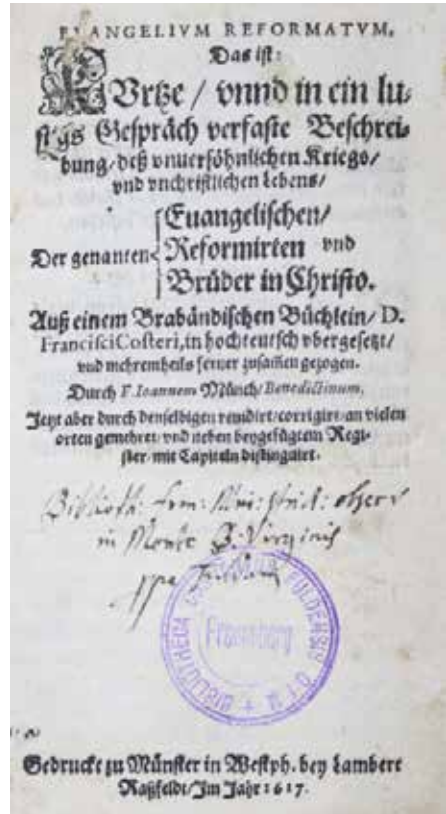 EVANGELIVM REFORMATVM,
Das ist:
KVrtze / vnnd in ein lu-
stigs Gespräch verfaste Beschrei-
bung / deß vnuersöhnlichen Kriegs /
vnd vnchristlichen Lebens /
Der genanten
Euangelischen /
Reformirten vnd
Brüder in Christo.
Auß einem Brabändischen Büchlein / D.
Francisci Costeri, in hochteutsch vbergesetzt /
vnd mehrentheils ferner zusam̃en gezogen.
Durch F. Ioannem Münch / Benedictinum,
Jetzt aber durch denselbigen reuidirt / corrigirt / an vielen
orten gemehret / vnd neben beygefügtem Regi-
ster / mit Capiteln distinguirt.
in Monte B. Virginis
BIBLIOTHECA FULDENSIS O F M
Frauenberg
Gedruckt zu Münster in Westph. bey Lambert
Raßfeldt / Im Jahr 1617.